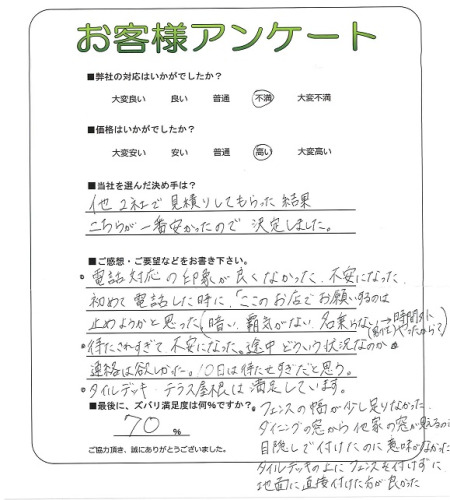 お客様アンケート
■弊社の対応はいかがでしたか？
大変良い 良い 普通 不満 大変不満
■価格はいかがでしたか？
大変安い 安い 普通 高い 大変高い
■当社を選んだ決め手は？
他2社で見積りしてもらった結果
こちらが一番安かったので決定しました。
■ご感想・ご要望などをお書き下さい。
・電話対応の印象が良くなかった、不安になった
初めて電話した時に、「ここのお店でお願いするのは
止めようかと思った(暗い、覇気がない、名乗らない→時間外
だったからか)
・待たされすぎて不安になった。途中どういう状況なのか
連絡は欲しかった。10日は待たせすぎだと思う。
・タイルデッキ・テラス屋根は満足しています。
■最後に、ズバリ満足度は何%ですか？
70 %
ご協力頂き、誠にありがとうございました。
・フェンスの幅が少し足りなかった。
ダイニングの窓から他家の窓が見えるので
目隠しで付けたのに意味がなかった
タイルデッキの上にフェンスを付けずに
地面に直接付けた方が良かった